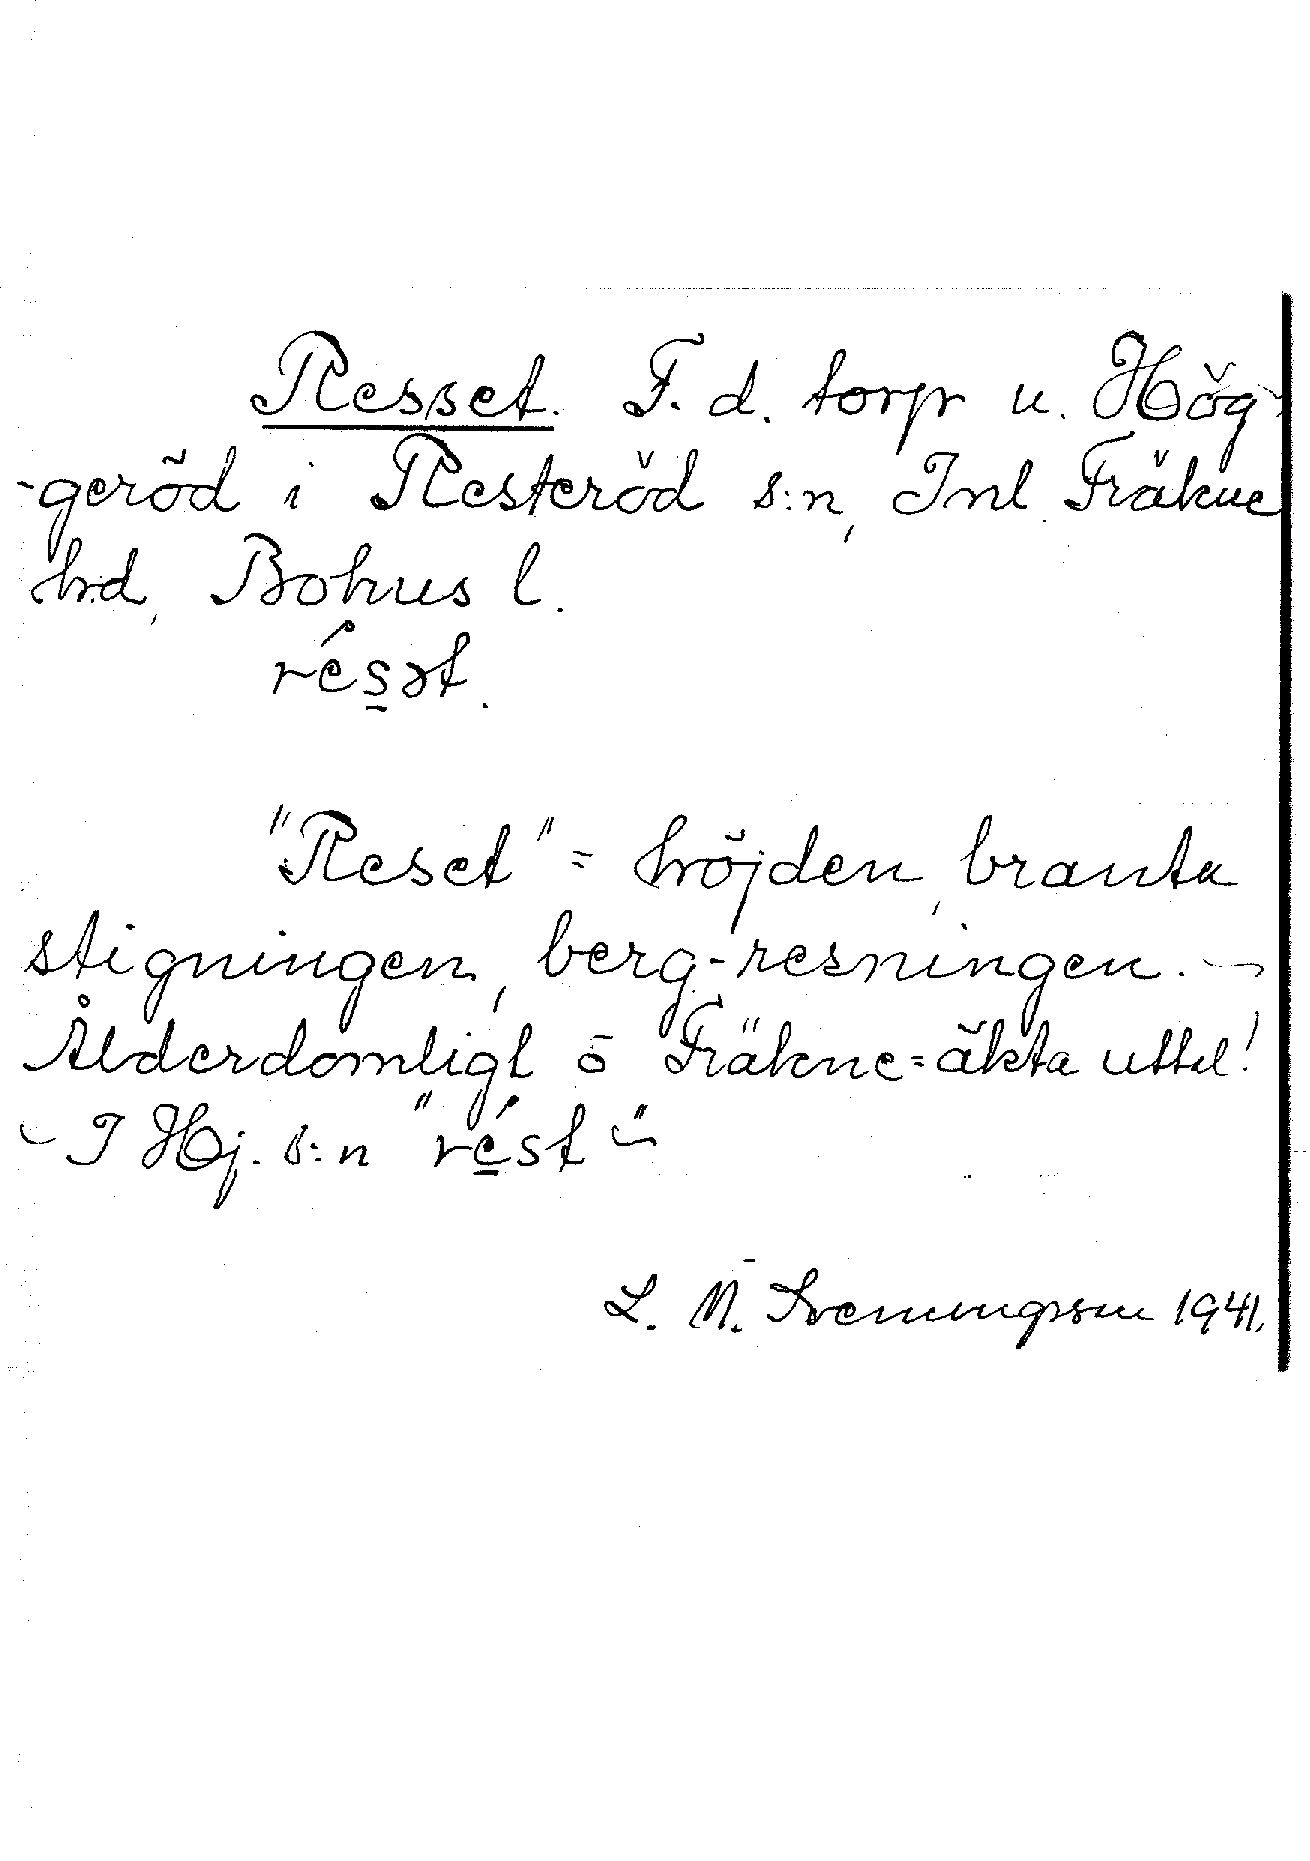 Resset. F. d. torp u. Hög-
-geröd i Resteröd s:n, Inl. Fräkne
hrd, Bohus l.
résət.
"Reset" = höjden, branta
stigningen, berg-resningen. -
Ålderdomligt o Fräkne=äkta uttal!
- I Hj. s:n "rést" -
L. M. Svenungsson 1941.